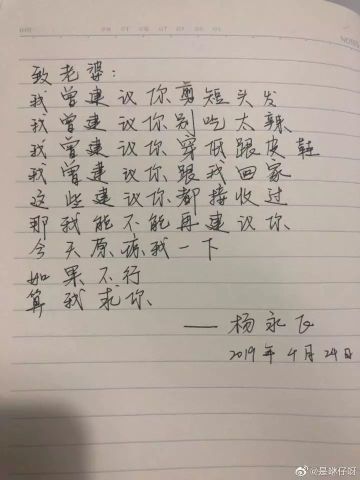 致老婆：
我曾建议你剪短头发
我曾建议你别吃太辣
我曾建议你穿低跟皮鞋
我曾建议你跟我回家
这些建议你都接收过
那我能不能再建议你
今天原谅我一下
如果不行
算我求你
——杨永飞
2019年4月24日
@是咪仔呀